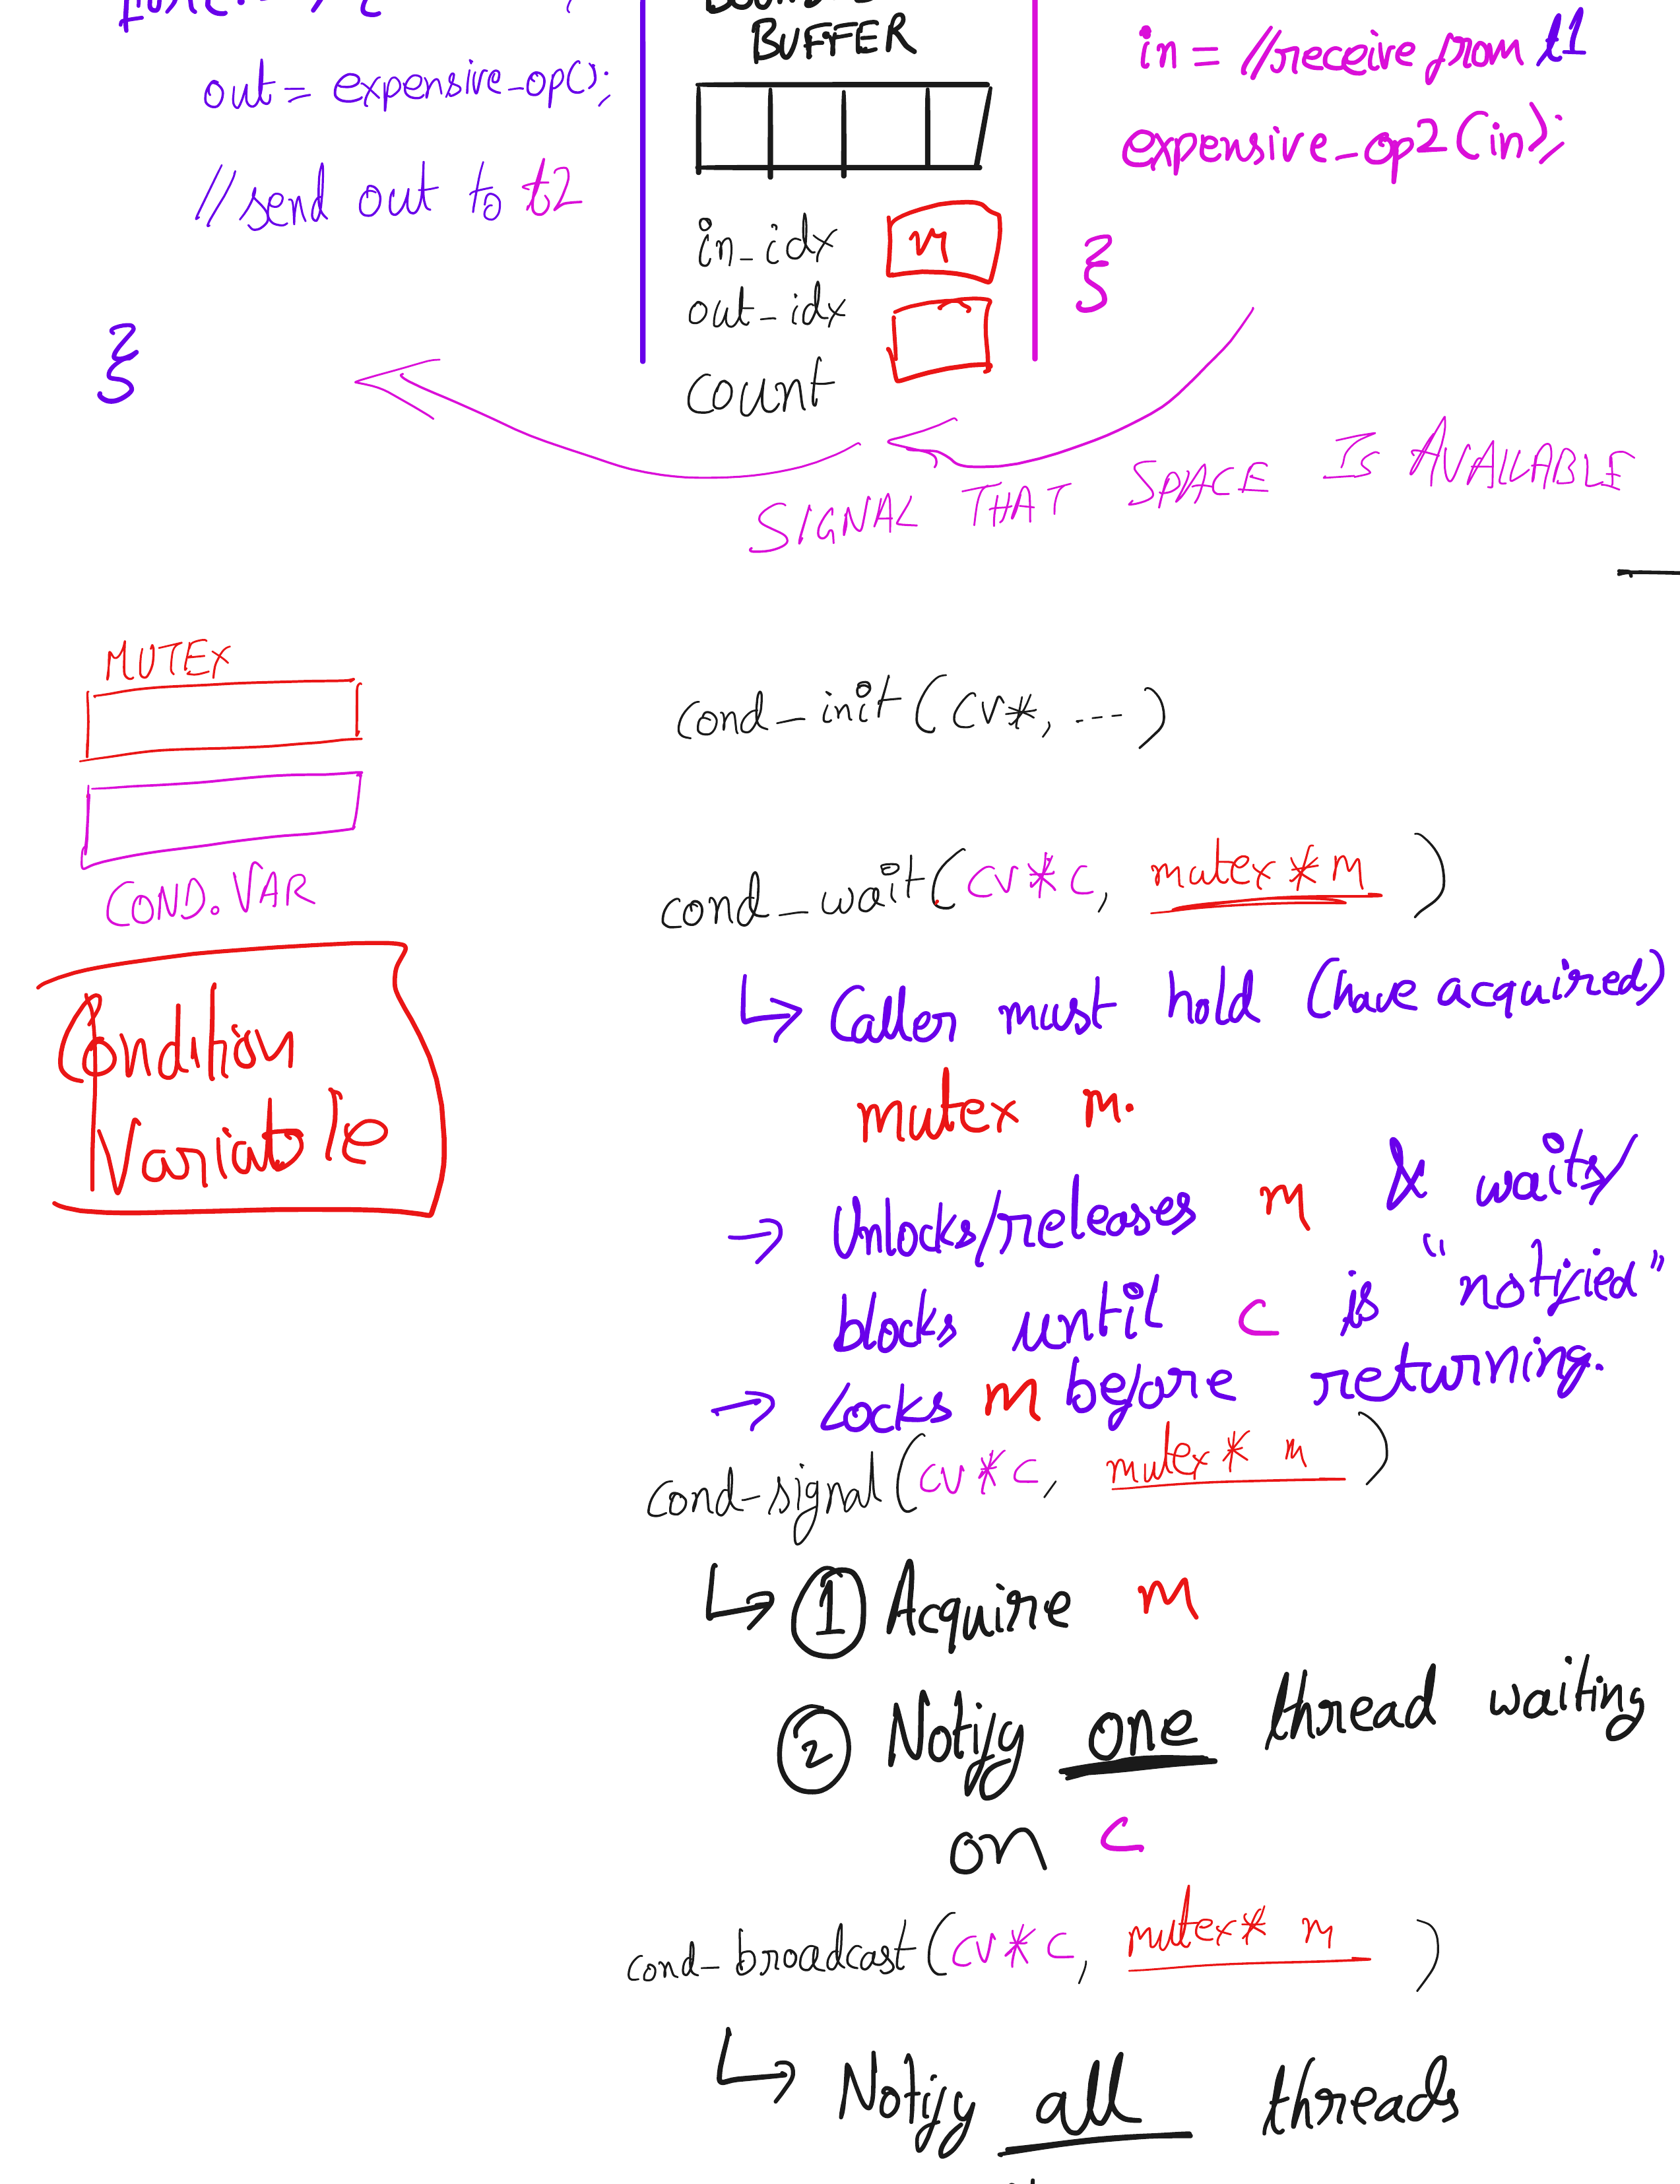 out = expensive_op();
//send out to t2
}
BUFFER
in_idx
m
out_idx
count
in = //receive from t1
expensive_op2(in);
}
SIGNAL THAT SPACE IS AVAILABLE
MUTEX
COND. VAR
Condition
Variable
cond_init(cv*, ...)
cond_wait(cv*c, mutex*m)
↳ Caller must hold (have acquired)
mutex m.
→ Unlocks/releases m & waits/
blocks until c is "notified"
→ Locks m before returning.
cond-signal(cv*c, mutex* m)
↳ ① Acquire m
② Notify one thread waiting
on c
cond_broadcast(cv*c, mutex* m)
↳ Notify all threads